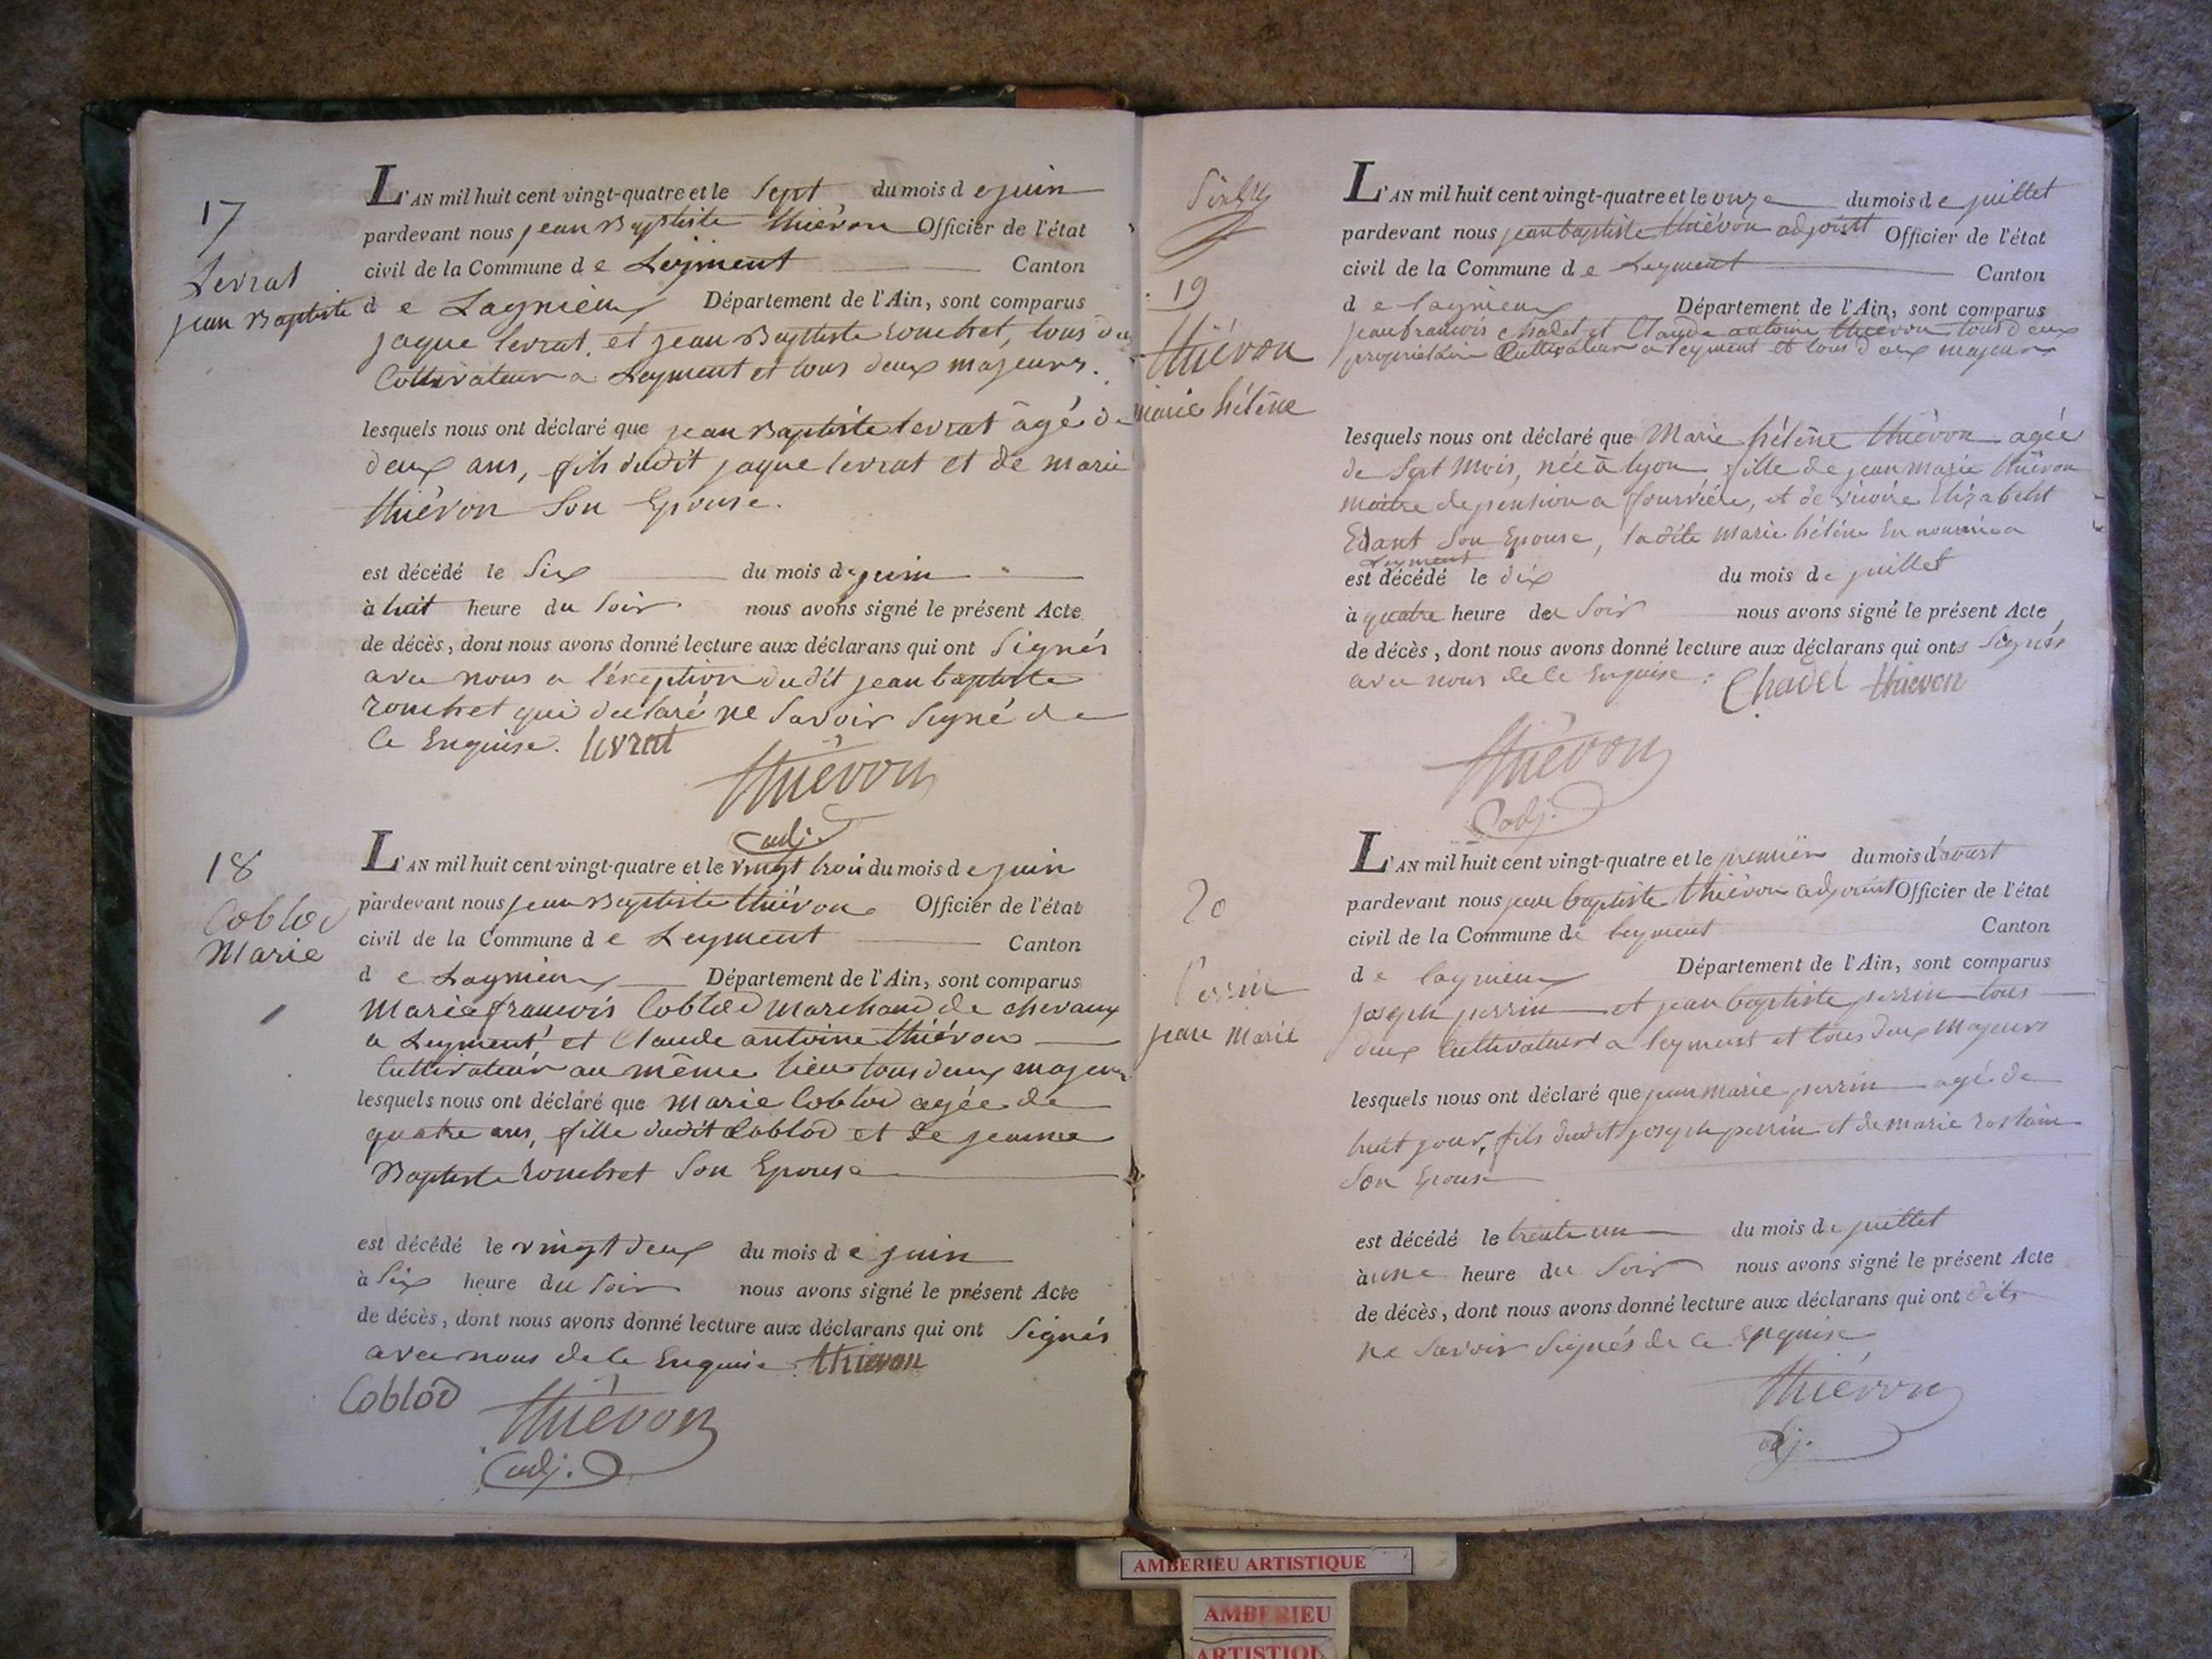 17
Levrat
jean Baptiste
L'AN mil huit cent vingt-quatre et le Sept du mois de juin
pardevant nous jean Baptiste thiévon Officier de l'état
civil de la Commune de Leyment Canton
de Lagnieu Département de l'Ain, sont comparus
jaque levrat, et jean Baptiste rouchet, tous du
Cultivateur a Leyment et tous deux majeurs.
lesquels nous ont déclaré que jean Baptiste levrat âgé de
deux ans, fils dudit jaque levrat et de marie
thiévon Son Epouse.
est décédé le Six du mois de juin
à huit heure du Soir nous avons signé le présent Acte
de décès, dont nous avons donné lecture aux déclarans qui ont Signés
avec nous a l'éxeption dudit jean baptiste
rouchet qui déclaré ne Savoir Signé de
Ce Enquise. levrat
thiévon
adj.
18
Coblod
Marie
L'AN mil huit cent vingt-quatre et le vingt trois du mois de juin
pardevant nous jean Baptiste thiévon Officier de l'état
civil de la Commune de Leyment Canton
de Lagnieu Département de l'Ain, sont comparus
Marie françois Coblod Marchand de chevaux
a Leyment et Claude antoine thiévon
Cultivateur au même lieu tous deux majeurs
lesquels nous ont déclaré que Marie Coblod agée de
quatre ans, fille dudit Coblod et de jeanne
Baptiste rouchet Son Epouse
est décédé le vingt deux du mois de juin
à Six heure du Soir nous avons signé le présent Acte
de décès, dont nous avons donné lecture aux déclarans qui ont Signés
avec nous de Ce Enquise thiévon
Coblod thiévon
adj.
19
thiévon
marie hélène
L'AN mil huit cent vingt-quatre et le onze du mois de juillet
pardevant nous jean baptiste thiévon adjoint Officier de l'état
civil de la Commune de Leyment Canton
de lagnieu Département de l'Ain, sont comparus
jean francois chadel et Claude antoine thiévon tous deux
propriétaire Cultivateur a leyment et tous deux majeurs
lesquels nous ont déclaré que Marie hélène thiévon agée
de Sept Mois, née à lyon fille de jean marie thiévon
maitre de pension a fourvière, et de Elizabeht
Son Epouse, ladite marie hélène En nourrice a
Leyment
est décédé le dix du mois de juillet
à quatre heure du Soir nous avons signé le présent Acte
de décès, dont nous avons donné lecture aux déclarans qui onts Signés
avec nous de Ce Enquise: Chadel thiévon
thiévon
adj.
20
Perrin
jean Marie
L'AN mil huit cent vingt-quatre et le premier du mois d'aoust
pardevant nous jean baptiste thiévon adjoint Officier de l'état
civil de la Commune de leyment Canton
de lagnieu Département de l'Ain, sont comparus
joseph perrin et jean baptiste perrin tous
deux Cultivateurs a leyment et tous deux Majeurs
lesquels nous ont déclaré que jean marie perrin agé de
huit jour, fils dudit joseph perrin et de marie rostain
Son Epouse
est décédé le trente un du mois de juillet
à une heure du Soir nous avons signé le présent Acte
de décès, dont nous avons donné lecture aux déclarans qui ont dits
ne Savoir Signés de Ce Enquise
thiévon
adj.
AMBERIEU ARTISTIQUE
AMBERIEU